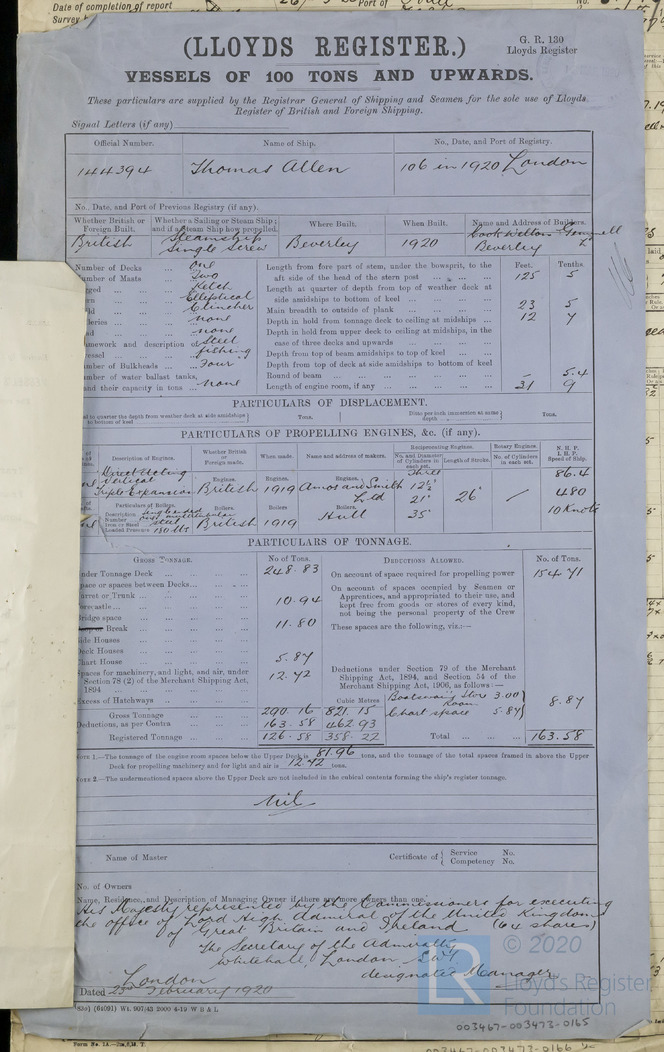 Date of completion of report
Port of
No.
Survey
(LLOYDS REGISTER.)
G. R. 130
Lloyds Register
VESSELS OF 100 TONS AND UPWARDS.
These particulars are supplied by the Registrar General of Shipping and Seamen for the sole use of Lloyds
Register of British and Foreign Shipping.
Signal Letters (if any)
Official Number. Name of Ship. No., Date, and Port of Registry.
144394 Thomas Allen 106 in 1920 London
No., Date, and Port of Previous Registry (if any).
Whether British or Foreign Built. Whether a Sailing or Steam Ship; and if a Steam Ship how propelled. Where Built. When Built. Name and Address of Builders.
British Steamship Single Screw Beverley 1920 Cook Welton & Gemmell Ld Beverley
Number of Decks ... One
Number of Masts ... Two
gged ... Ketch
Elliptical
Clencher
leries ... none
none
amework and description of Steel
essel ... fishing
mber of Bulkheads ... Four
mber of water ballast tanks,
and their capacity in tons ... None
Feet. Tenths.
Length from fore part of stem, under the bowsprit, to the
aft side of the head of the stern post ... 125 5
Length at quarter of depth from top of weather deck at
side amidships to bottom of keel ...
Main breadth to outside of plank ... 23 5
Depth in hold from tonnage deck to ceiling at midships ... 12 7
Depth in hold from upper deck to ceiling at midships, in the
case of three decks and upwards ...
Depth from top of beam amidships to top of keel ...
Depth from top of deck at side amidships to bottom of keel
Round of beam ... 5.4
Length of engine room, if any ... 31 9
PARTICULARS OF DISPLACEMENT.
l to quarter the depth from weather deck at side amidships to bottom of keel Tons. Ditto per inch immersion at same depth Tons.
PARTICULARS OF PROPELLING ENGINES, &c. (if any).
Description of Engines. Whether British or Foreign made. When made. Name and address of makers. Reciprocating Engines. Rotary Engines. N. H. P. I. H. P. Speed of Ship.
No. and Diameter of Cylinders in each set. Length of Stroke. No. of Cylinders in each set.
Direct Acting Vertical Triple Expansion
Engines. British Engines. 1919 Engines. Amos and Smith Ltd
Three 12½" 21" 35" 26" / 86.4 480 10 Knots
Particulars of Boilers. Boilers. Boilers Boilers.
Description
Number
Iron or Steel Steel
Loaded Pressure
British 1919 Hull
PARTICULARS OF TONNAGE.
GROSS TONNAGE. No of Tons. DEDUCTIONS ALLOWED. No. of Tons.
nder Tonnage Deck ... 248.83
pace or spaces between Decks ...
urret or Trunk ...
orecastle ... 10.94
ridge space ...
Break ... 11.80
ide Houses ...
eck Houses ...
hart House ... 5.87
paces for machinery, and light, and air, under
Section 78 (2) of the Merchant Shipping Act,
1894 ... 12.72
xcess of Hatchways ...
Cubic Metres
Gross Tonnage ... 290.16 821.15
eductions, as per Contra ... 163.58 462.93
Registered Tonnage ... 126.58 358.22
On account of space required for propelling power 154.71
On account of spaces occupied by Seamen or
Apprentices, and appropriated to their use, and
kept free from goods or stores of every kind,
not being the personal property of the Crew
These spaces are the following, viz.:—
Deductions under Section 79 of the Merchant
Shipping Act, 1894, and Section 54 of the
Merchant Shipping Act, 1906, as follows:—
Boatswains Store Room 3.00
Chart space 5.87
8.87
Total ... 163.58
OTE 1.—The tonnage of the engine room spaces below the Upper Deck is 81.96 tons, and the tonnage of the total spaces framed in above the Upper
Deck for propelling machinery and for light and air is 12.72 tons.
OTE 2.—The undermentioned spaces above the Upper Deck are not included in the cubical contents forming the ship's register tonnage.
Nil
Name of Master Certificate of Service No.
Competency No.
No. of Owners
Name, Residence, and Description of Managing Owner if there are more owners than one.
His Majesty represented by the Commissioners for executing
the office of Lord High Admiral of the United Kingdom
of Great Britain and Ireland (64 shares)
The Secretary of the Admiralty
Whitehall, London S.W.1.
designated Manager
London
Dated 25 February 1920
(64091) Wt. 907/43 2000 4-19 W B & L
© 2020
LR
Lloyd's Register
Foundation
003467-003473-0165
003467-003473-0166